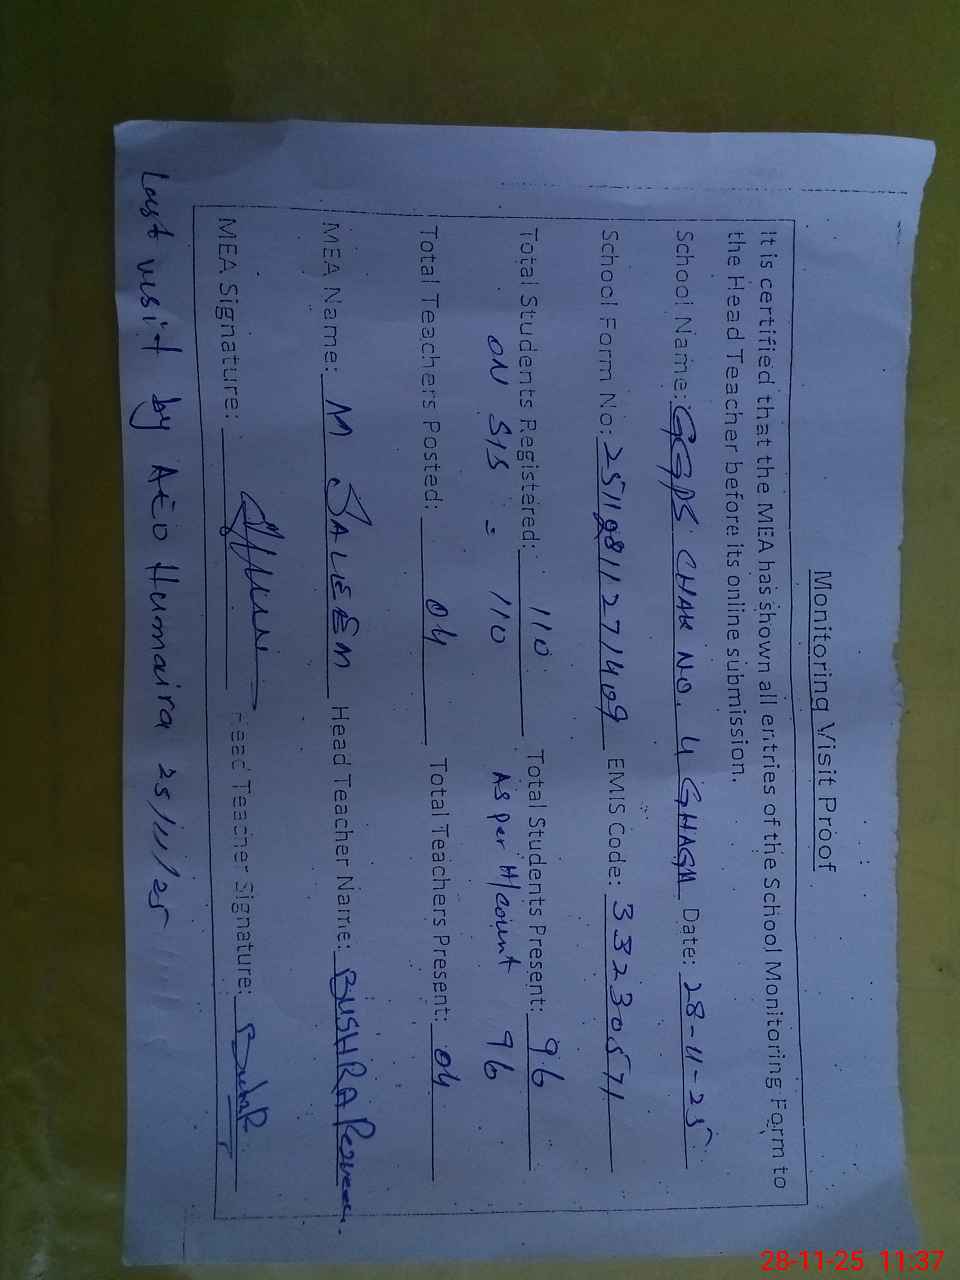 Monitoring Visit Proof
It is certified that the MEA has shown all entries of the School Monitoring Form to
the Head Teacher before its online submission.
School Name: GGPS CHAK NO. 4 GHAGH Date: 28-11-25
School Form No: EMIS Code: 33230571
Total Students Registered: 110 Total Students Present: 96
ON SIS = 110 As per H/count 96
Total Teachers Posted: 04 Total Teachers Present: 04
MEA Name: M SALEEM Head Teacher Name: BUSHRA Perveen.
MEA Signature: Head Teacher Signature:
Last visit by AEO Humaira 25/11/25
28-11-25 11:37